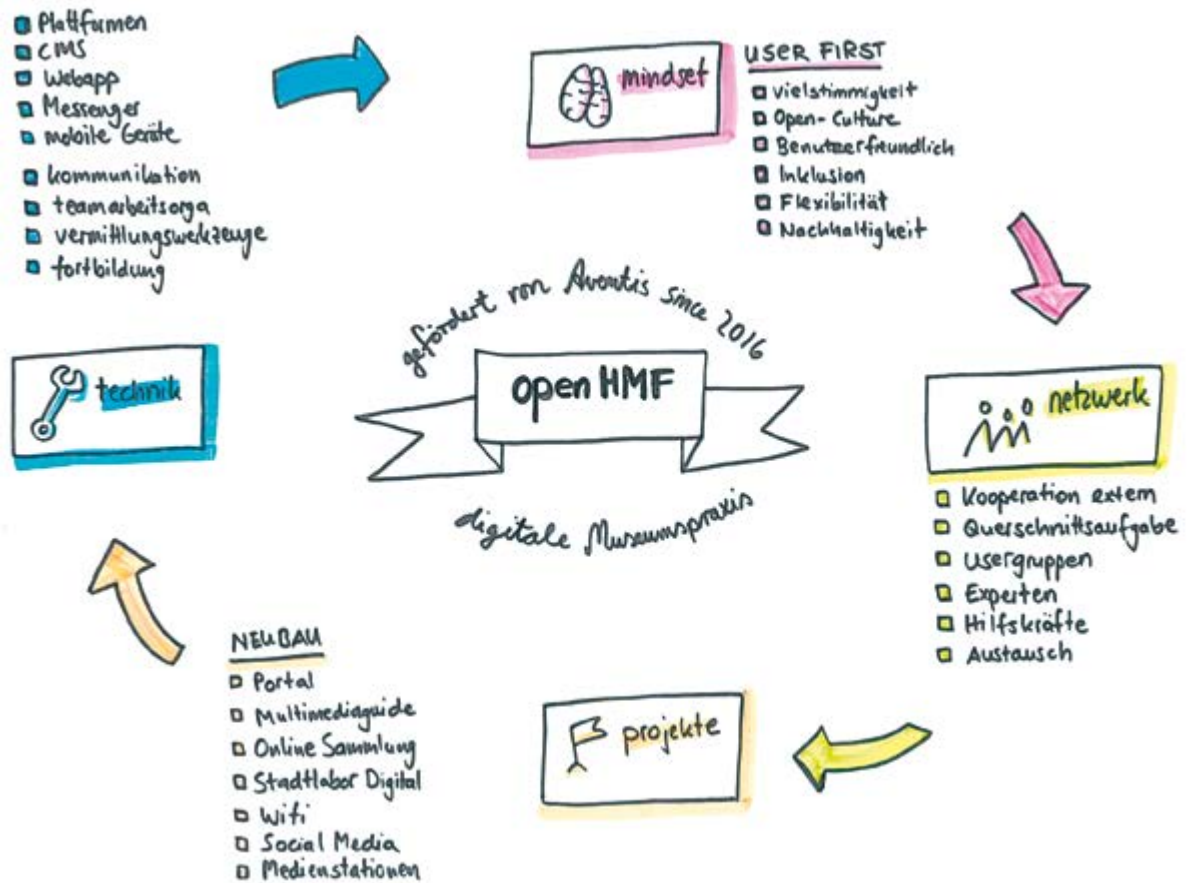 Plattformen
CMS
Webapp
Messenger
mobile Geräte
kommunikation
teamarbeitsorga
vermittlungswerkzeuge
fortbildung
mindset
USER FIRST
vielstimmigkeit
Open-Culture
Benutzerfreundlich
Inklusion
Flexibilität
Nachhaltigkeit
gefördert von Aventis since 2016
open HMF
digitale Museumspraxis
technik
netzwerk
Kooperation extern
Querschnittsaufgabe
Usergruppen
Experten
Hilfskräfte
Austausch
NEUBAU
Portal
Multimediaguide
Online Sammlung
Stadtlabor Digital
Wifi
Social Media
Medienstationen
projekte